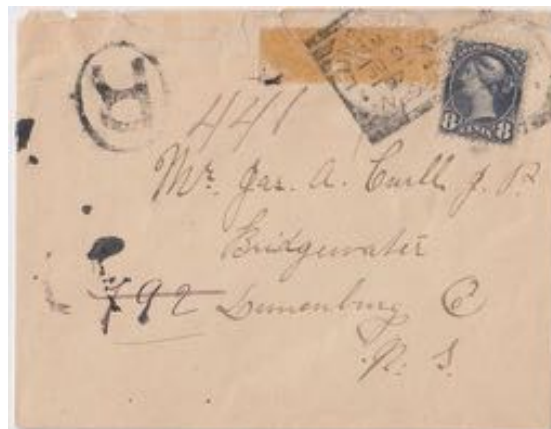 R
8 CENTS 8
441
Mr. Jas. A. Curll J. P.
Bridgewater
792 Lunenburg C
N. S.